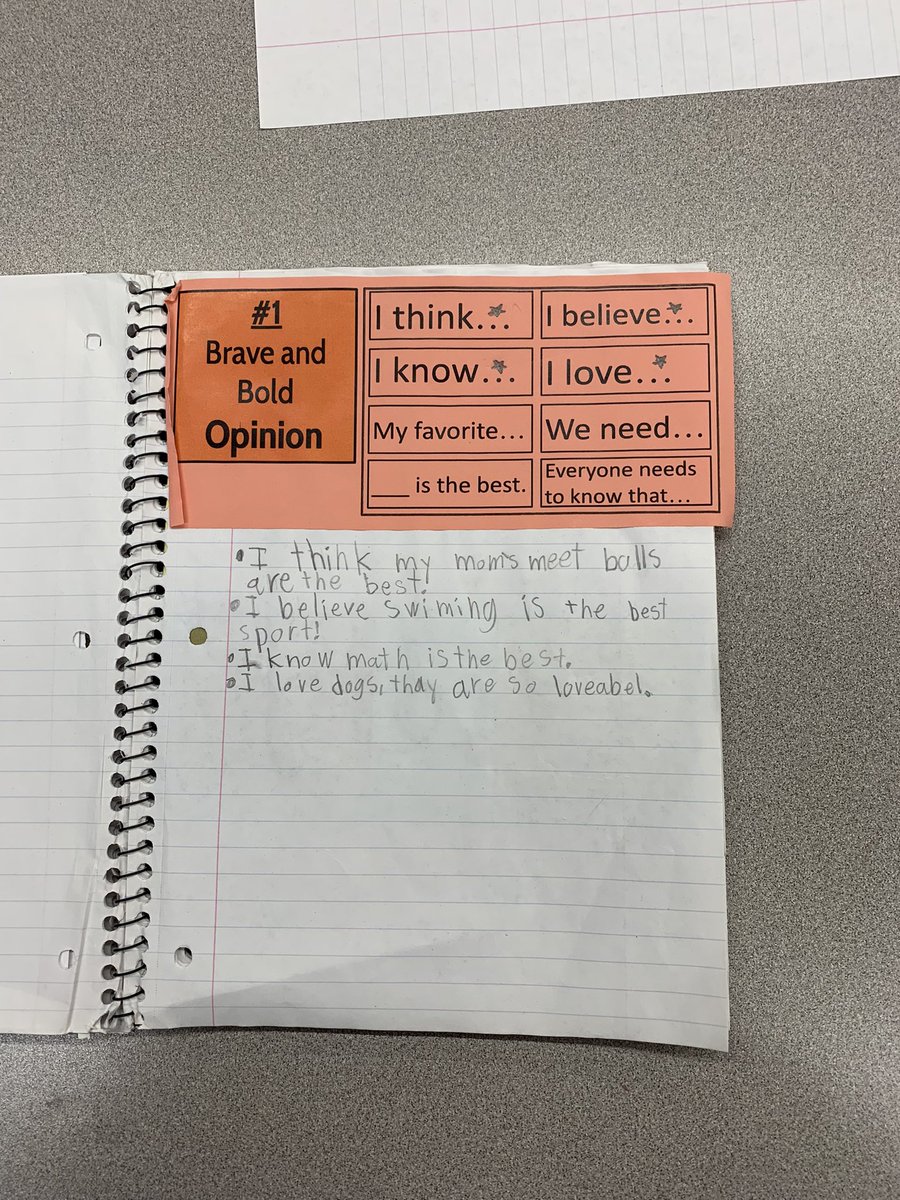 #1
Brave and
Bold
Opinion
I think...
I believe...
I know...
I love...
My favorite...
We need...
___ is the best.
Everyone needs
to know that...
• I think my mom's meet balls
are the best.
• I believe swiming is the best
sport!
• I know math is the best.
• I love dogs, thay are so loveabel.